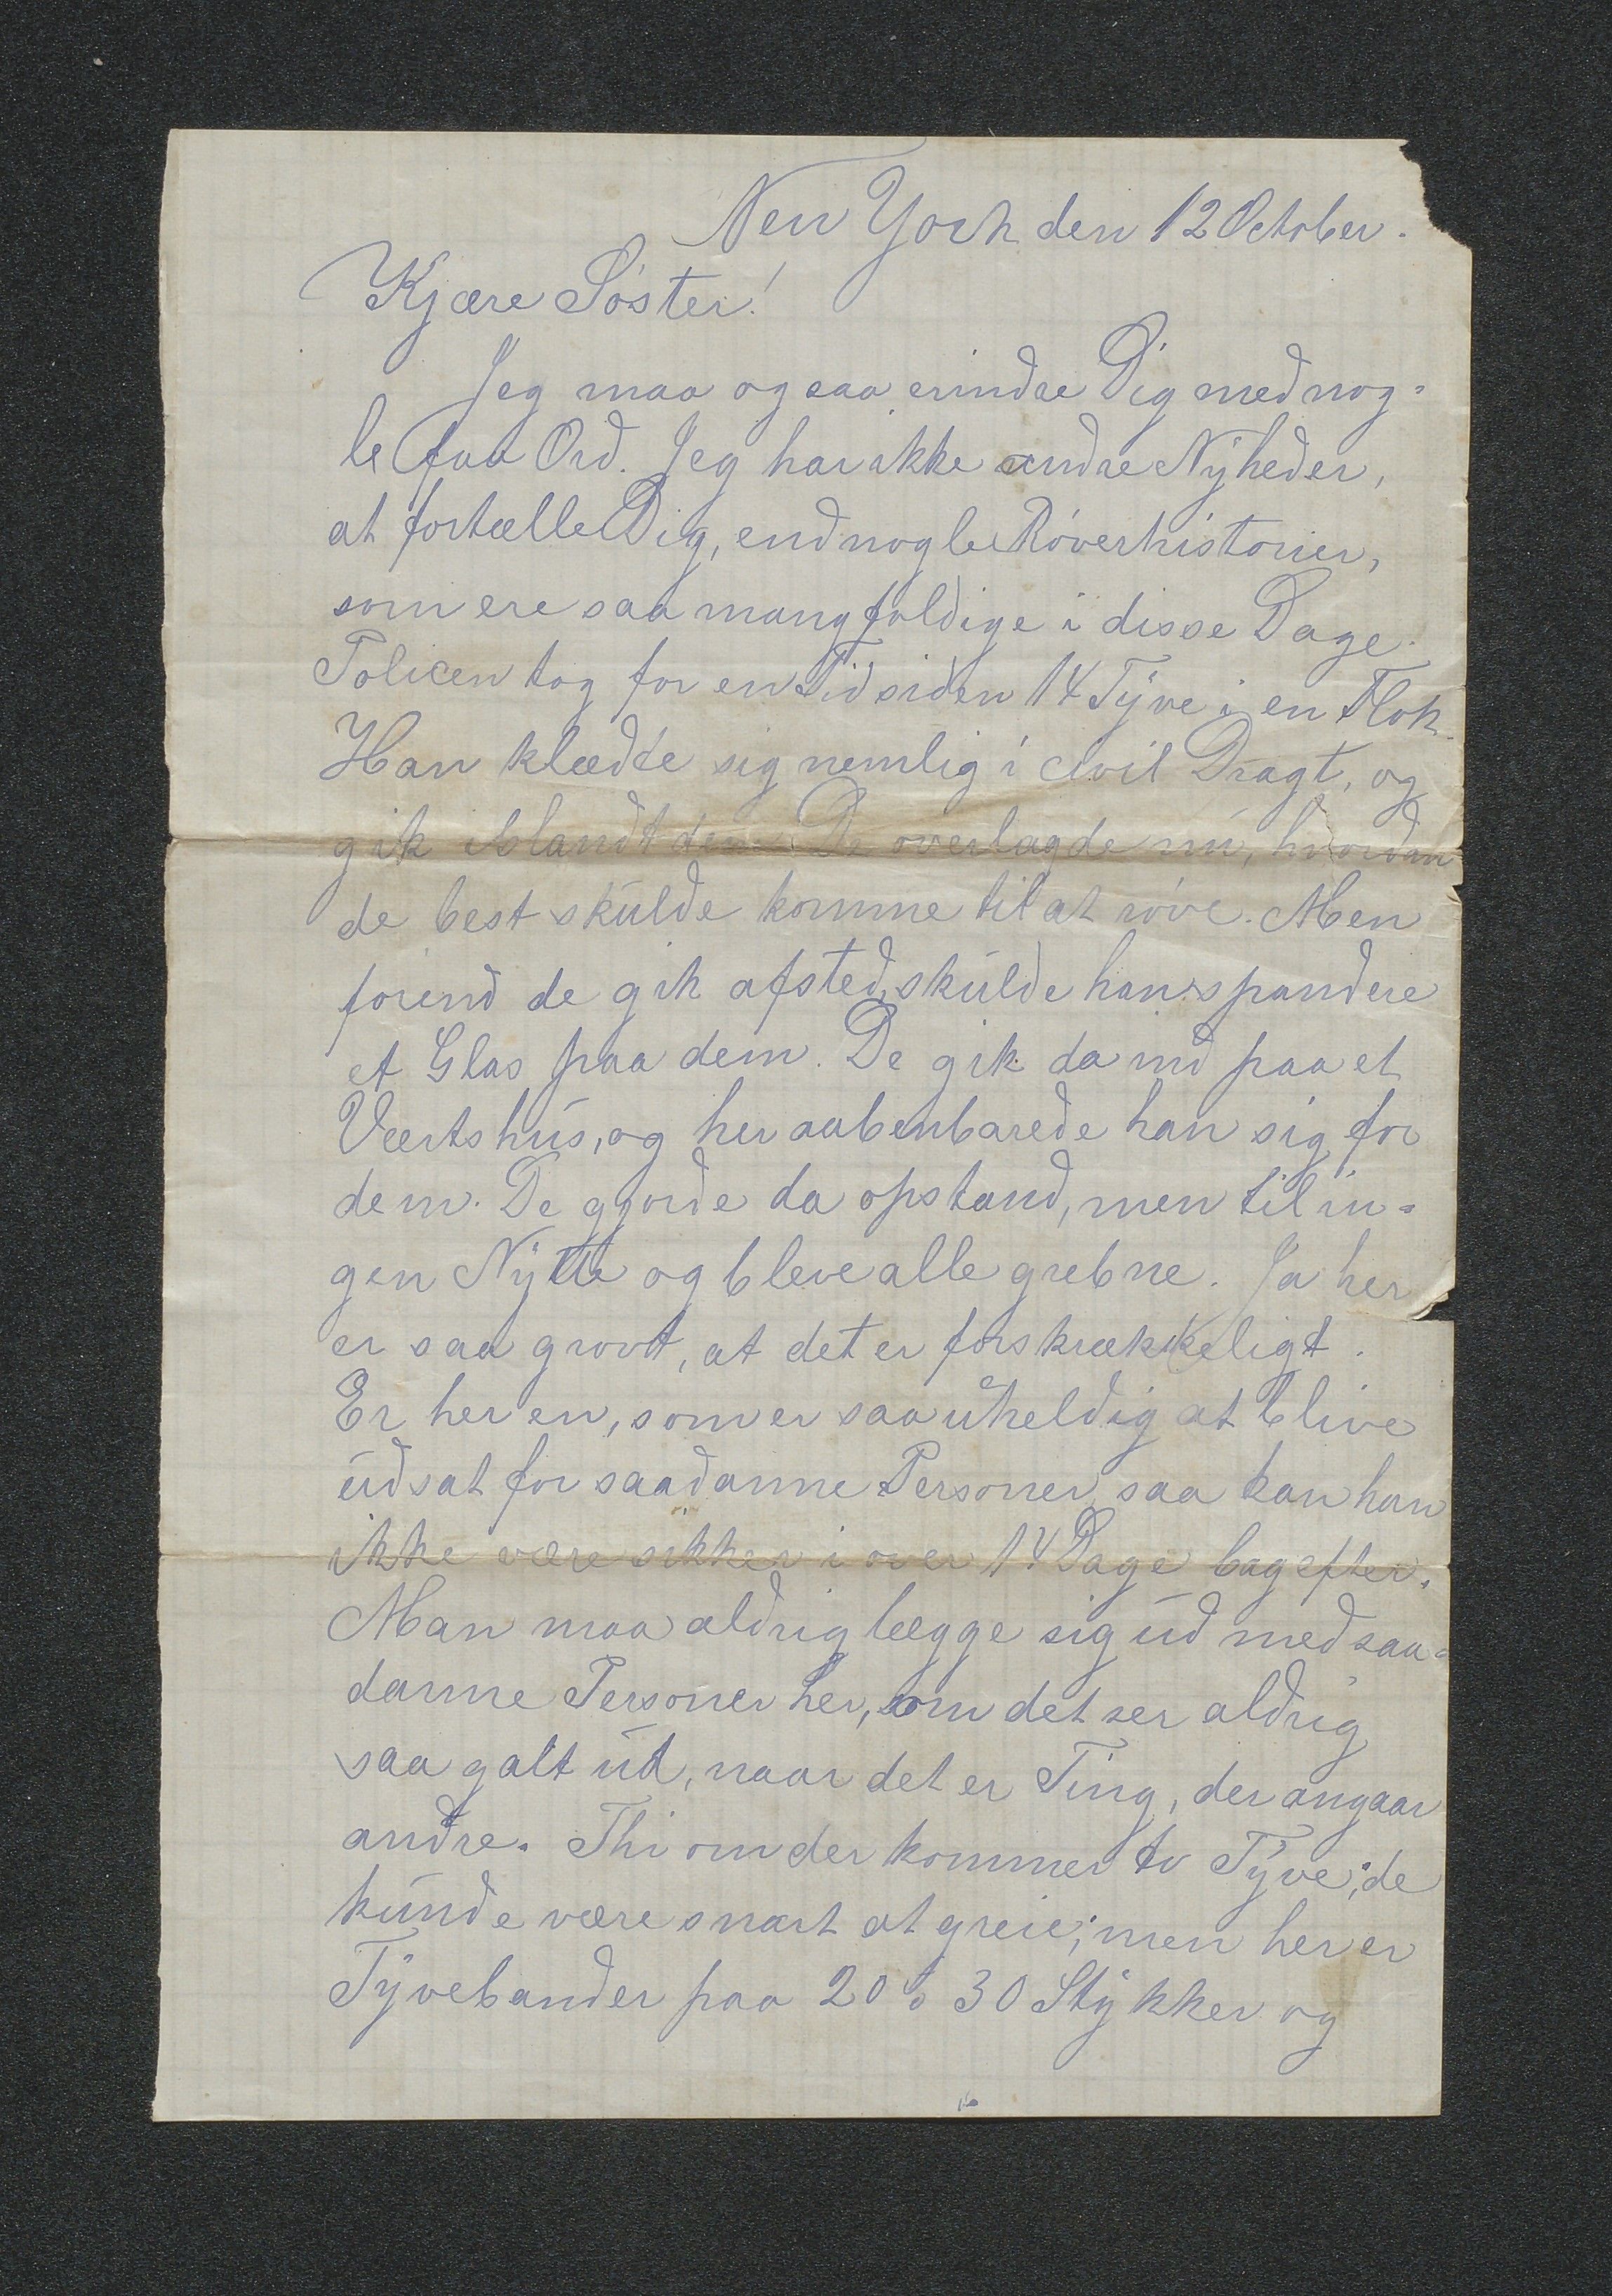 New York den 12 October.
Kjære Söster!
Jeg maa ogsaa erindre Dig med nog=
le faa Ord. Jeg har ikke andre Nyheder,
at fortælle Dig, end nogle Röverhistorier,
som ere saa mangfoldige i disse Dage.
Policen tog for en Tid siden 14 Tyve i en Flok.
Han klædte sig nemlig i civil Dragt, og
gik iblandt dem. De overlagde nu, hvordan
de best skulde komme til at röve. Men
forend de gik afsted, skulde han spandere
et Glas paa dem. De gik da ind paa et
Værtshus, og her aabenbarede han sig for
dem. De gjorde da opstand, men til in=
gen Nytte og bleve alle grebne. Ja her
er saa grovt, at det er forskrækkeligt.
Er her en, som er saa uheldig at blive
udsat for saadanne Personer, saa kan han
ikke være sikker i over 14 Dage bagefter.
Man maa aldrig lægge sig ud med saa=
danne Personer her, om det ser aldrig
saa galt ud, naar det er Ting, der angaar
andre. Thi om der kommer to Tyve; de
kunde være snart at greie; men her er
Tyvebander paa 20 à 30 Stykker og